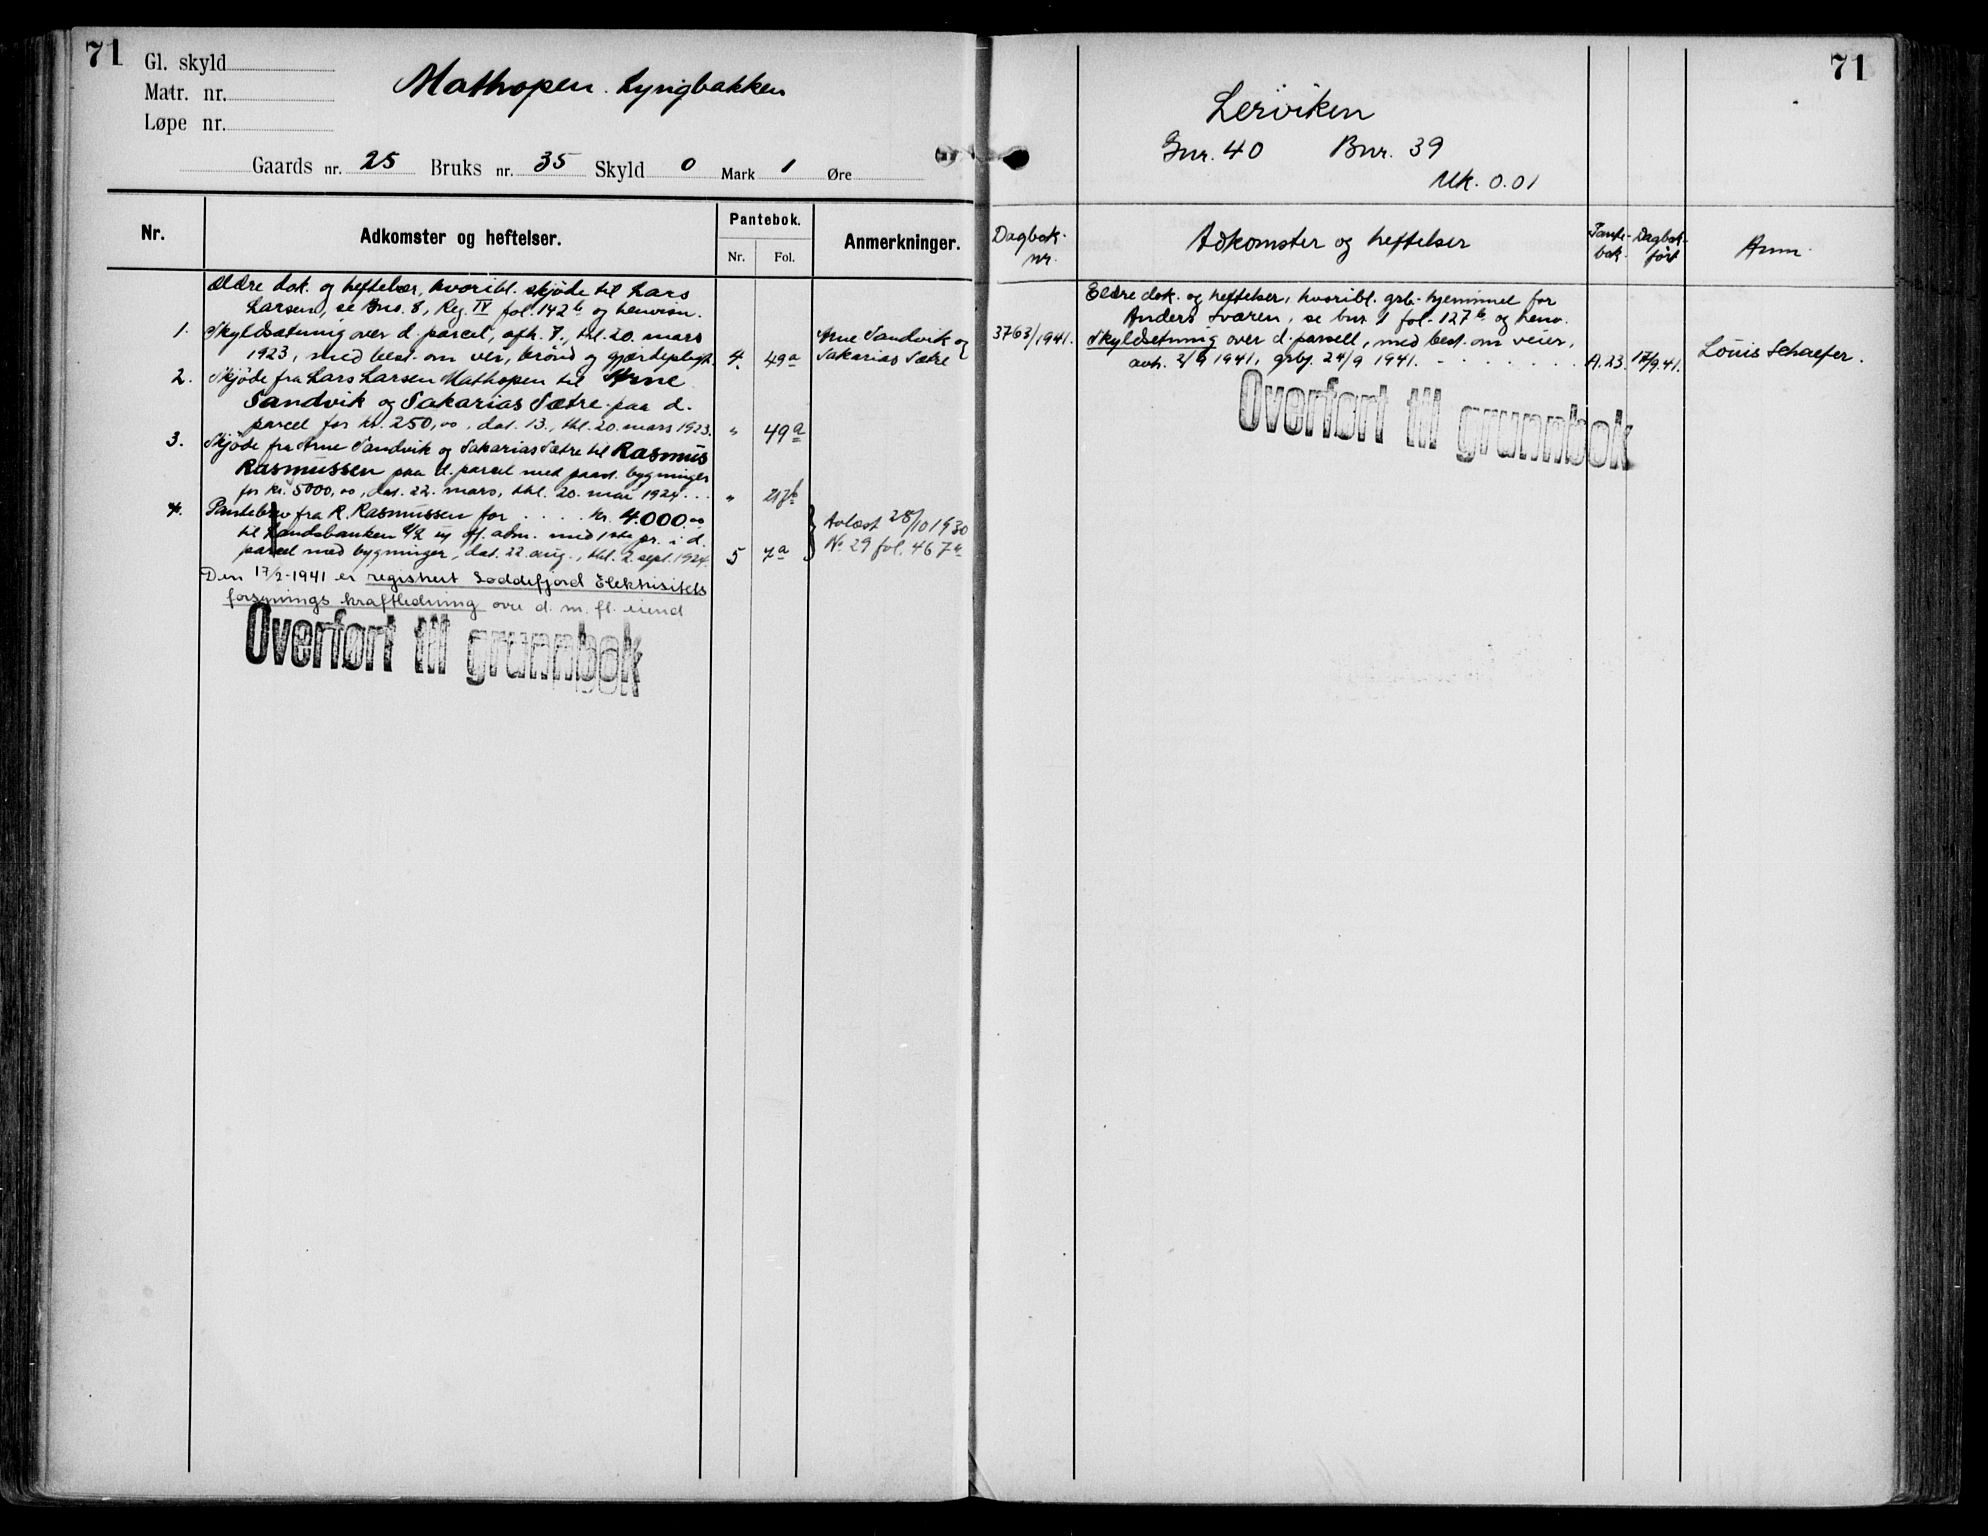 71
Gl. skyld
Matr. nr.
Løpe nr.
Mathopen. Lyngbakken
Gaards nr. 25 Bruks nr. 35 Skyld 0 Mark 1 Øre
Nr.
Adkomster og heftelser.
Pantebok.
Nr. Fol.
Anmerkninger.
Ældre dok. og heftelser, hvoribl. skjøde til Lars
Larsen, se Bns. 8, Reg. IV fol. 142b og henvisn.
1. Skyldsætning over d. parcel, afh. 7., thl. 20. mars
1923, med best. om vei, brønd og gjærdepligt. 4. 49a
Arne Sandvik og
Sakarias Sætre
2. Skjøde fra Lars Larsen Mathopen til Arne
Sandvik og Sakarias Sætre paa d.
parcel for kr. 250,00, dat. 13., thl. 20. mars 1923. " 49a
3. Skjøde fra Arne Sandvik og Sakarias Sætre til Rasmus
Rasmussen paa d. parcel med paast. bygninger
for kr. 5000,00, dat. 22. mars, thl. 20. mai 1924... "
4. Pantebrev fra R. Rasmussen for .... kr. 4.000.00
til Landsbanken A/L off. adm. med 1ste pr. i d.
parcel med bygninger, dat. 22. aug., thl. 2. sept. 1924. 5 7a
Avlæst 28/10 1930
No 29 fol. 467a
Den 17/2-1941 er registrert Loddefjord Elektrisitets
forsynings kraftledning over d. m. fl. eiend
Overført til grunnbok
71
Lerviken
Gnr. 40 Bnr. 39
Mk. 0.01
Dagbok-
nr.
Adkomster og heftelser
Pante-
bok.
Dagbok-
ført
Anm.
Eldre dok. og heftelser, hvoribl. grb. hjemmel for
Anders Sværen, se bnr. 1 fol. 127b og henv.
3763/1941. Skyldsetning over d. parsell, med best. om veier,
avh. 2/9 1941, grbj. 24/9 1941. A. 23. 17/9.41. Louis Schaefer.
Overført til grunnbok